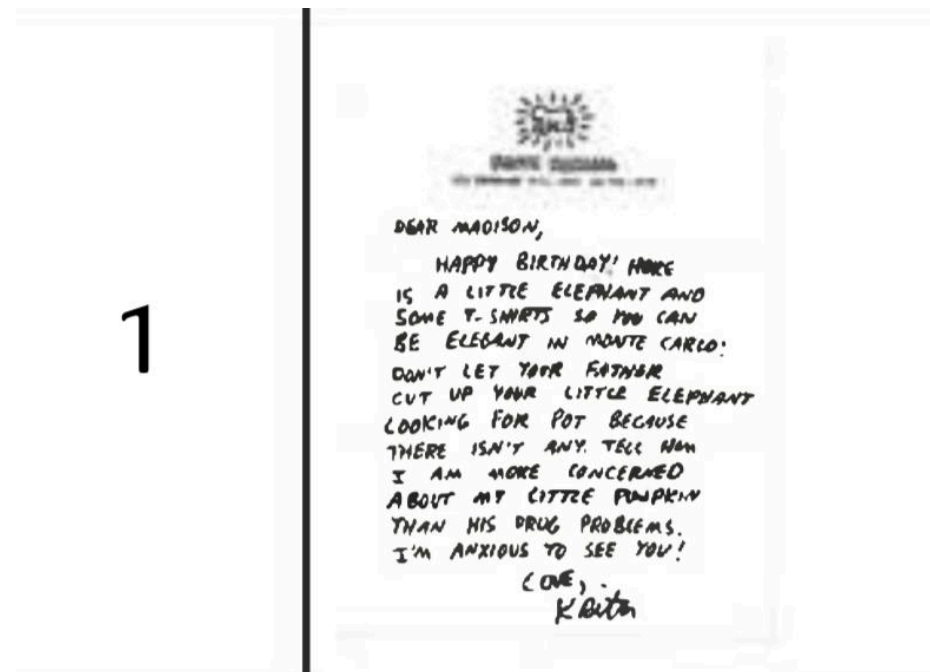 1
DEAR MADISON,
HAPPY BIRTHDAY! HERE
IS A LITTLE ELEPHANT AND
SOME T-SHIRTS SO YOU CAN
BE ELEGANT IN MONTE CARLO!
DON'T LET YOUR FATHER
CUT UP YOUR LITTLE ELEPHANT
LOOKING FOR POT BECAUSE
THERE ISN'T ANY. TELL HIM
I AM MORE CONCERNED
ABOUT MY LITTLE PUMPKIN
THAN HIS DRUG PROBLEMS.
I'M ANXIOUS TO SEE YOU!
LOVE,
Keith